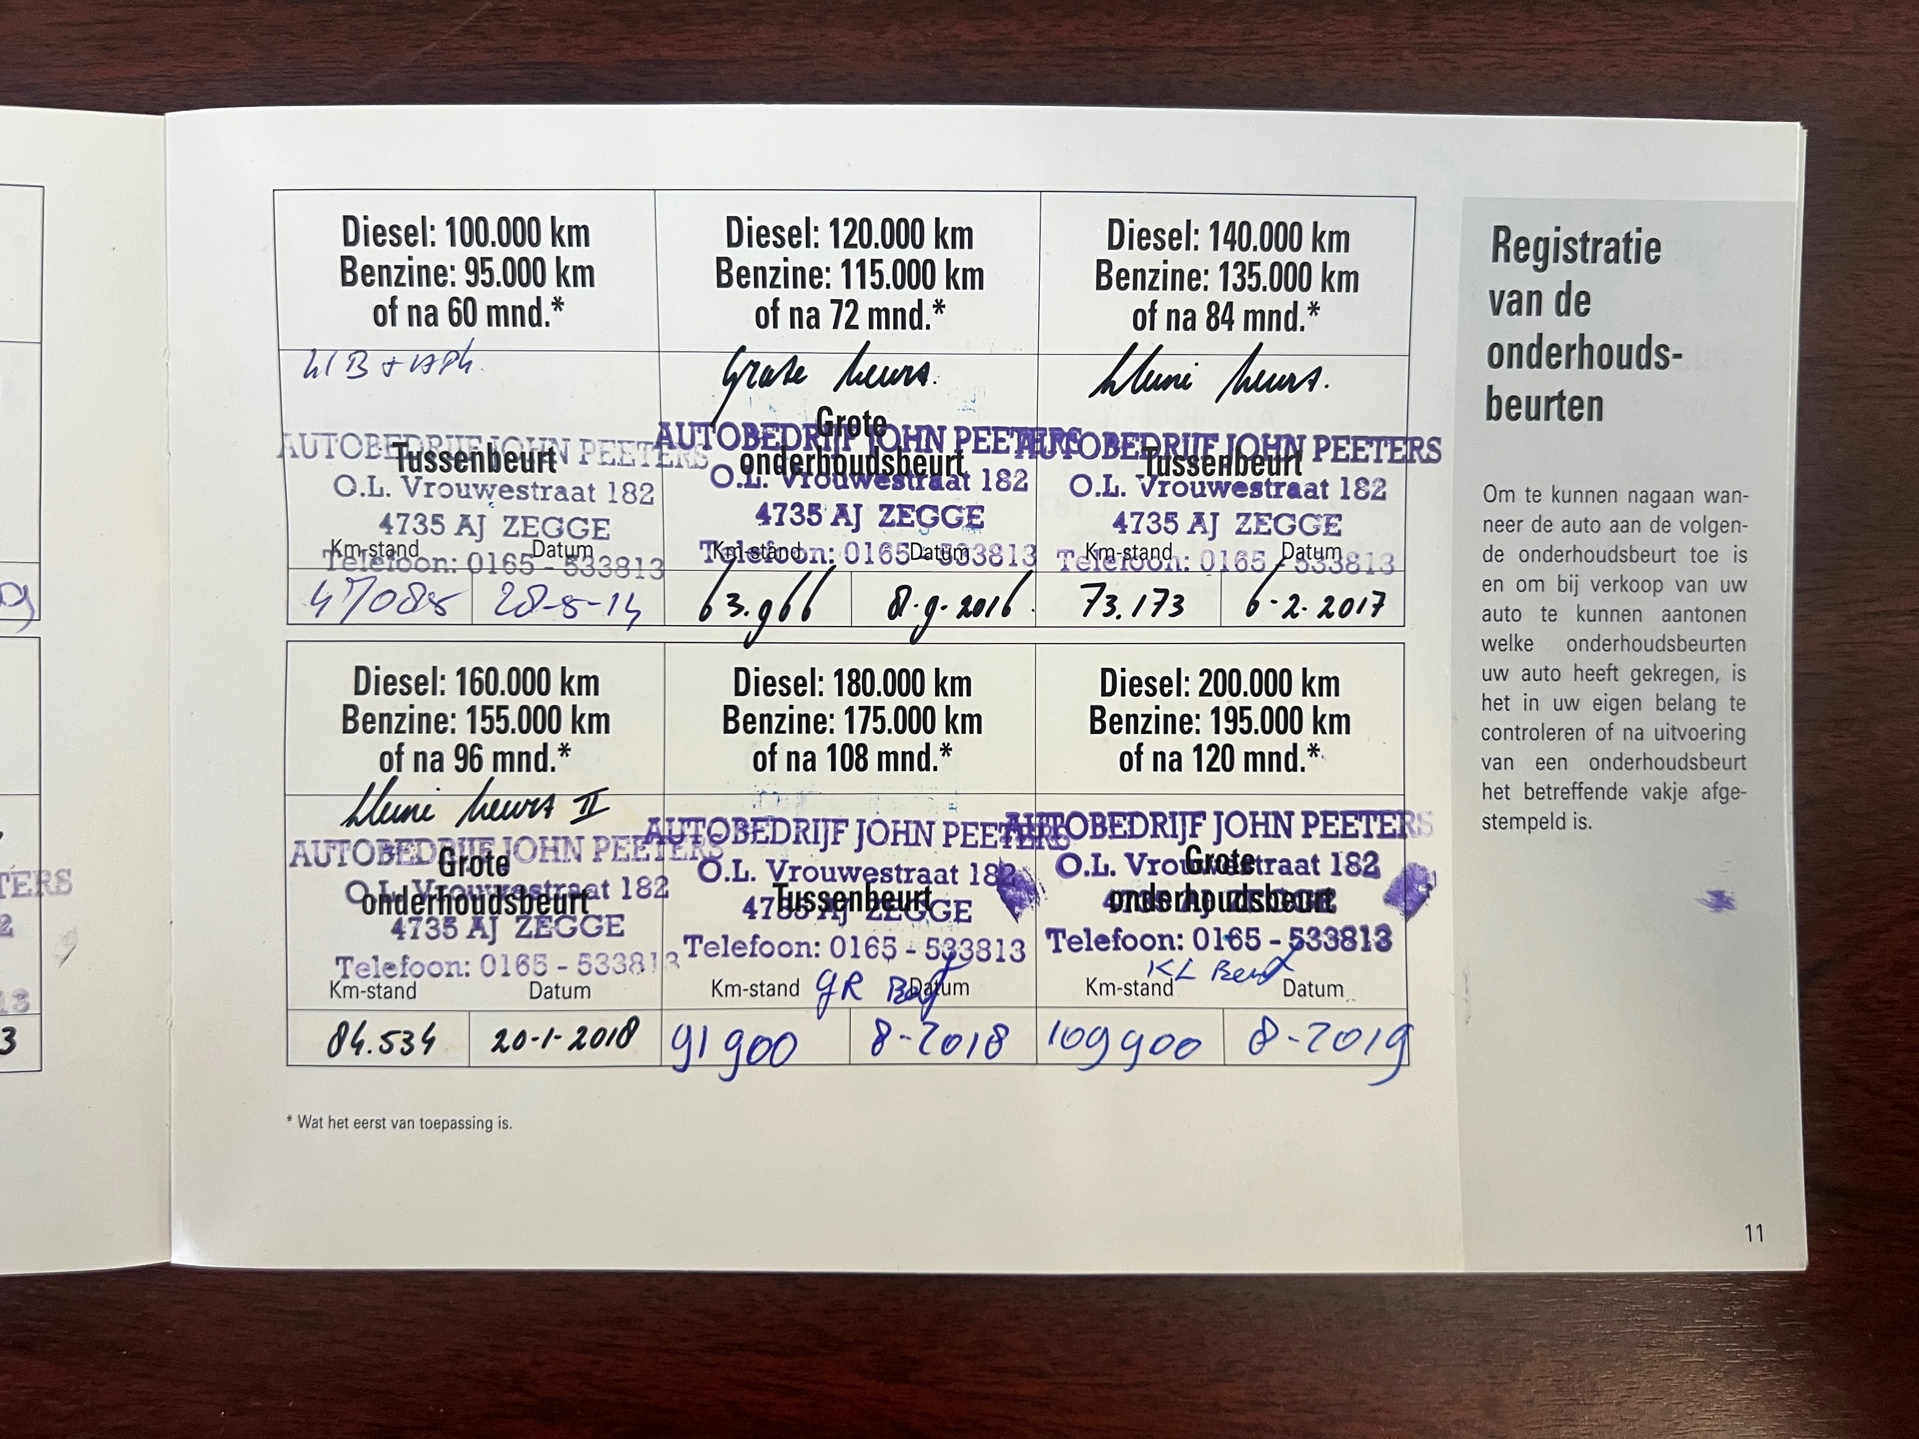 Diesel: 100.000 km
Benzine: 95.000 km
of na 60 mnd.*
AUTOBEDRIJF JOHN PEETERS
Tussenbeurt
O.L. Vrouwestraat 182
4735 AJ ZEGGE
Km-stand Datum
Telefoon: 0165 - 533813
47085 28-5-14
Diesel: 120.000 km
Benzine: 115.000 km
of na 72 mnd.*
Grote beurt.
Grote
AUTOBEDRIJF JOHN PEETERS
onderhoudsbeurt
O.L. Vrouwestraat 182
4735 AJ ZEGGE
Km-stand Datum
Telefoon: 0165 - 533813
63.966 8-9-2016
Diesel: 140.000 km
Benzine: 135.000 km
of na 84 mnd.*
kleine beurt.
AUTOBEDRIJF JOHN PEETERS
Tussenbeurt
O.L. Vrouwestraat 182
4735 AJ ZEGGE
Km-stand Datum
Telefoon: 0165 - 533813
73.173 6-2-2017
Diesel: 160.000 km
Benzine: 155.000 km
of na 96 mnd.*
kleine beurt II
AUTOBEDRIJF JOHN PEETERS
Grote
O.L. Vrouwestraat 182
onderhoudsbeurt
4735 AJ ZEGGE
Telefoon: 0165 - 533813
Km-stand Datum
84.534 20-1-2018
Diesel: 180.000 km
Benzine: 175.000 km
of na 108 mnd.*
AUTOBEDRIJF JOHN PEETERS
O.L. Vrouwestraat 182
Tussenbeurt
4735 AJ ZEGGE
Telefoon: 0165 - 533813
gR
Km-stand Datum
91900 8-2018
Diesel: 200.000 km
Benzine: 195.000 km
of na 120 mnd.*
AUTOBEDRIJF JOHN PEETERS
O.L. Vrouwestraat 182
Grote
onderhoudsbeurt
4735 AJ ZEGGE
Telefoon: 0165 - 533813
KL Beurt
Km-stand Datum
109900 8-2019
* Wat het eerst van toepassing is.
Registratie
van de
onderhouds-
beurten
Om te kunnen nagaan wan-
neer de auto aan de volgen-
de onderhoudsbeurt toe is
en om bij verkoop van uw
auto te kunnen aantonen
welke onderhoudsbeurten
uw auto heeft gekregen, is
het in uw eigen belang te
controleren of na uitvoering
van een onderhoudsbeurt
het betreffende vakje afge-
stempeld is.
11
TERS
2
13
3